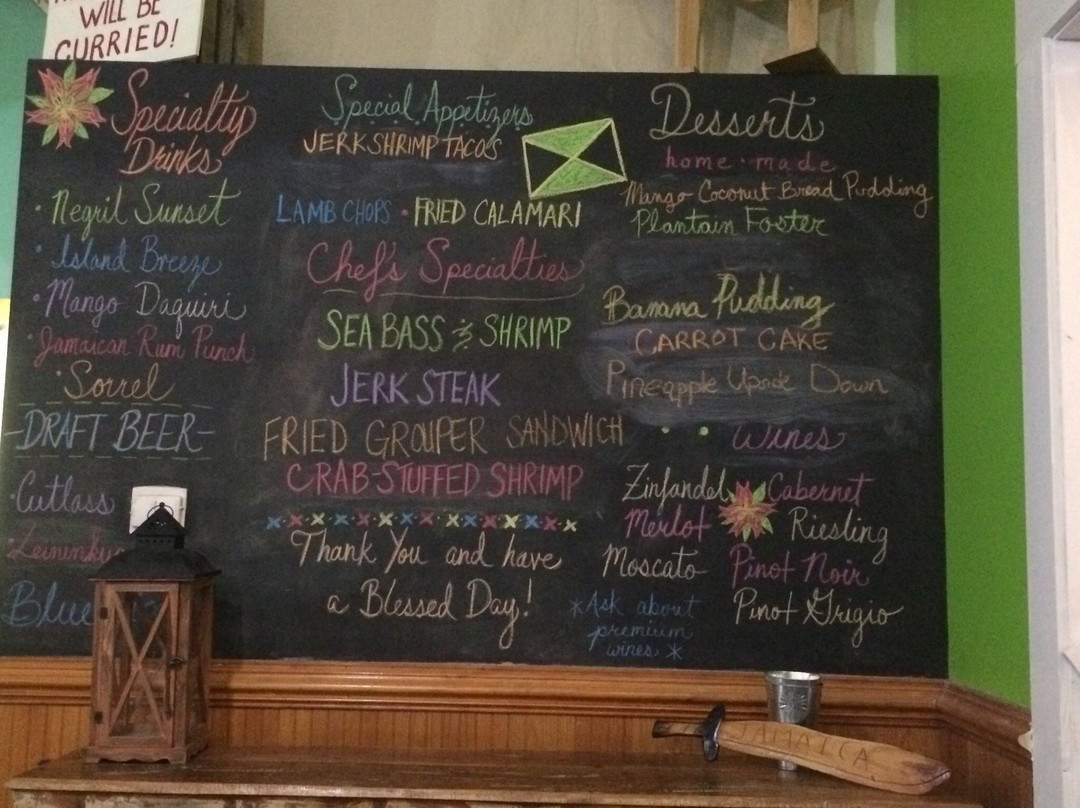 WILL BE
CURRIED!
Specialty
Drinks
· Negril Sunset
· Island Breeze
· Mango Daquiri
· Jamaican Rum Punch
· Sorrel
-DRAFT BEER-
· Cutlass
Blue
Special Appetizers
JERK SHRIMP TACOS
LAMB CHOPS · FRIED CALAMARI
Chef's Specialties
SEA BASS & SHRIMP
JERK STEAK
FRIED GROUPER SANDWICH
CRAB-STUFFED SHRIMP
Thank You and have
a Blessed Day!
Desserts
home-made
Mango Coconut Bread Pudding
Plantain Foster
Banana Pudding
CARROT CAKE
Pineapple Upside Down
Wines
Zinfandel Cabernet
Merlot Riesling
Moscato Pinot Noir
Pinot Grigio
*Ask about
premium
wines *
JAMAICA